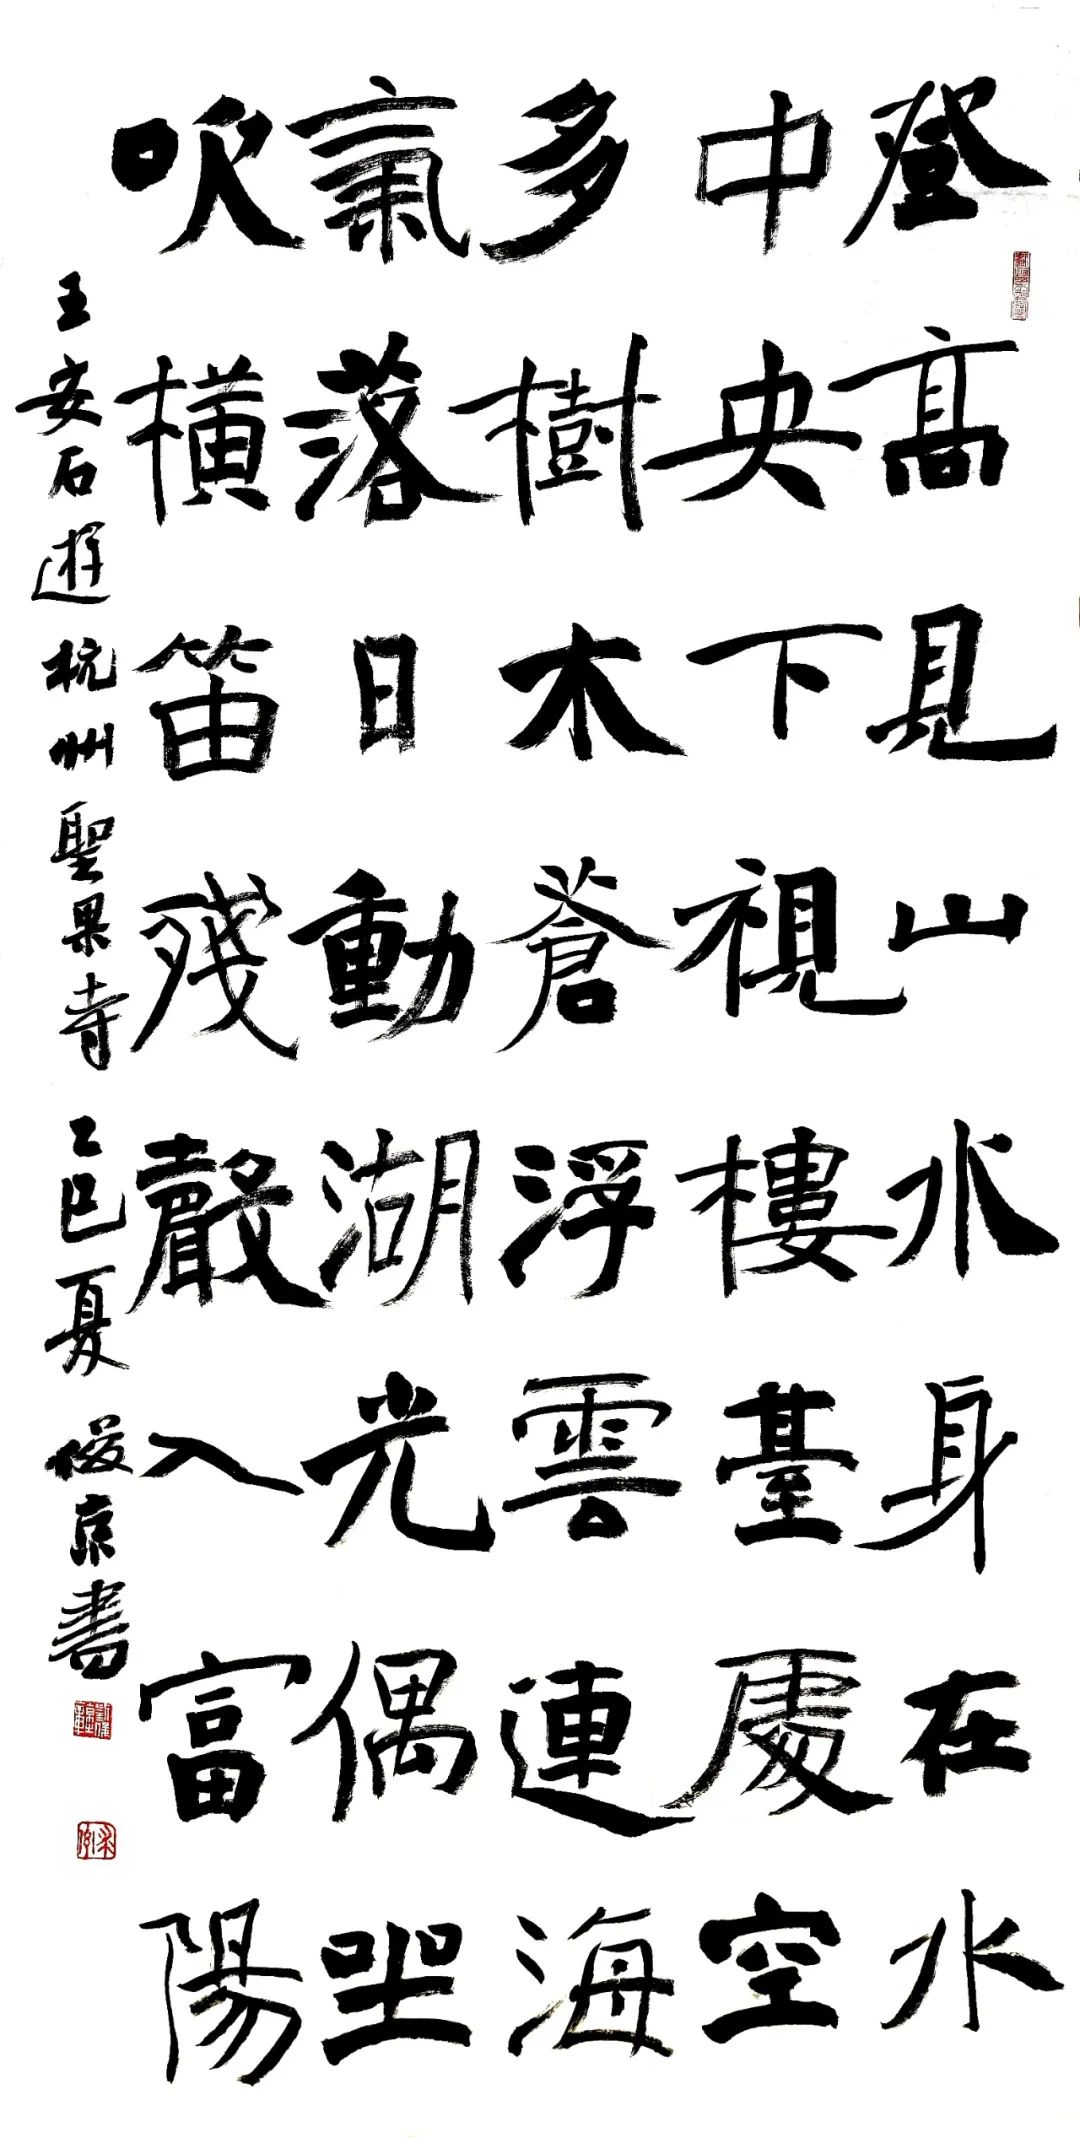 登高見山水身在水
中央下視樓臺處空
多樹木蒼浮雲連海
氣落日動湖光偶坐
吹橫笛殘聲入富陽
王安石遊杭州聖果寺乙巳夏俊京書